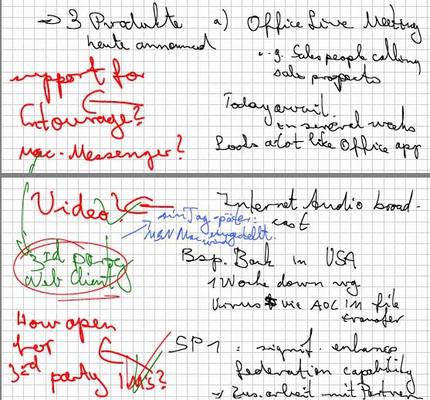 → 3 Produkte
heute announced
a) Office Live Meeting
z.B. Sales people calling
sales prospects
support for
Entourage?
Mac-Messenger?
Today avail.
in several weeks
Looks a lot like Office app
Video?
Internet Audio broad-
cast
ein Tag später:
MSN Mac wird eingestellt.
3rd party
Web client
Bsp. Bank in USA
1 Woche down wg
Virus via AOL IM file
transfer
How open
for
3rd party
IMs?
SP1: signif. enhance
federation capability
→ Zus.arbeit mit Partnern